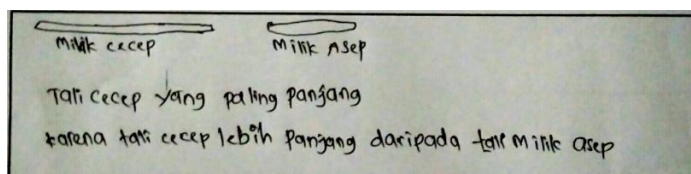 Milik cecep
Milik Asep
Tali cecep yang paling panjang
karena tali cecep lebih panjang daripada tali milik asep